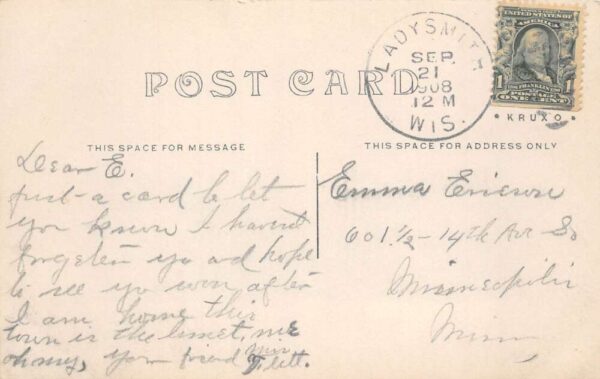 LADYSMITH
SEP.
21
1908
12 M
WIS.
UNITED STATES OF AMERICA
FRANKLIN
1 1
POSTAGE
ONE CENT
POST CARD
• KRUXO •
THIS SPACE FOR MESSAGE
THIS SPACE FOR ADDRESS ONLY
Dear E.
Just a card to let
you know I havent
forgoten you and hope
to see you soon after
I am home this
town is the
oh my, your friend
Emma Ericson
601 1/2 - 14th Ave So
Minneapolis
Minn